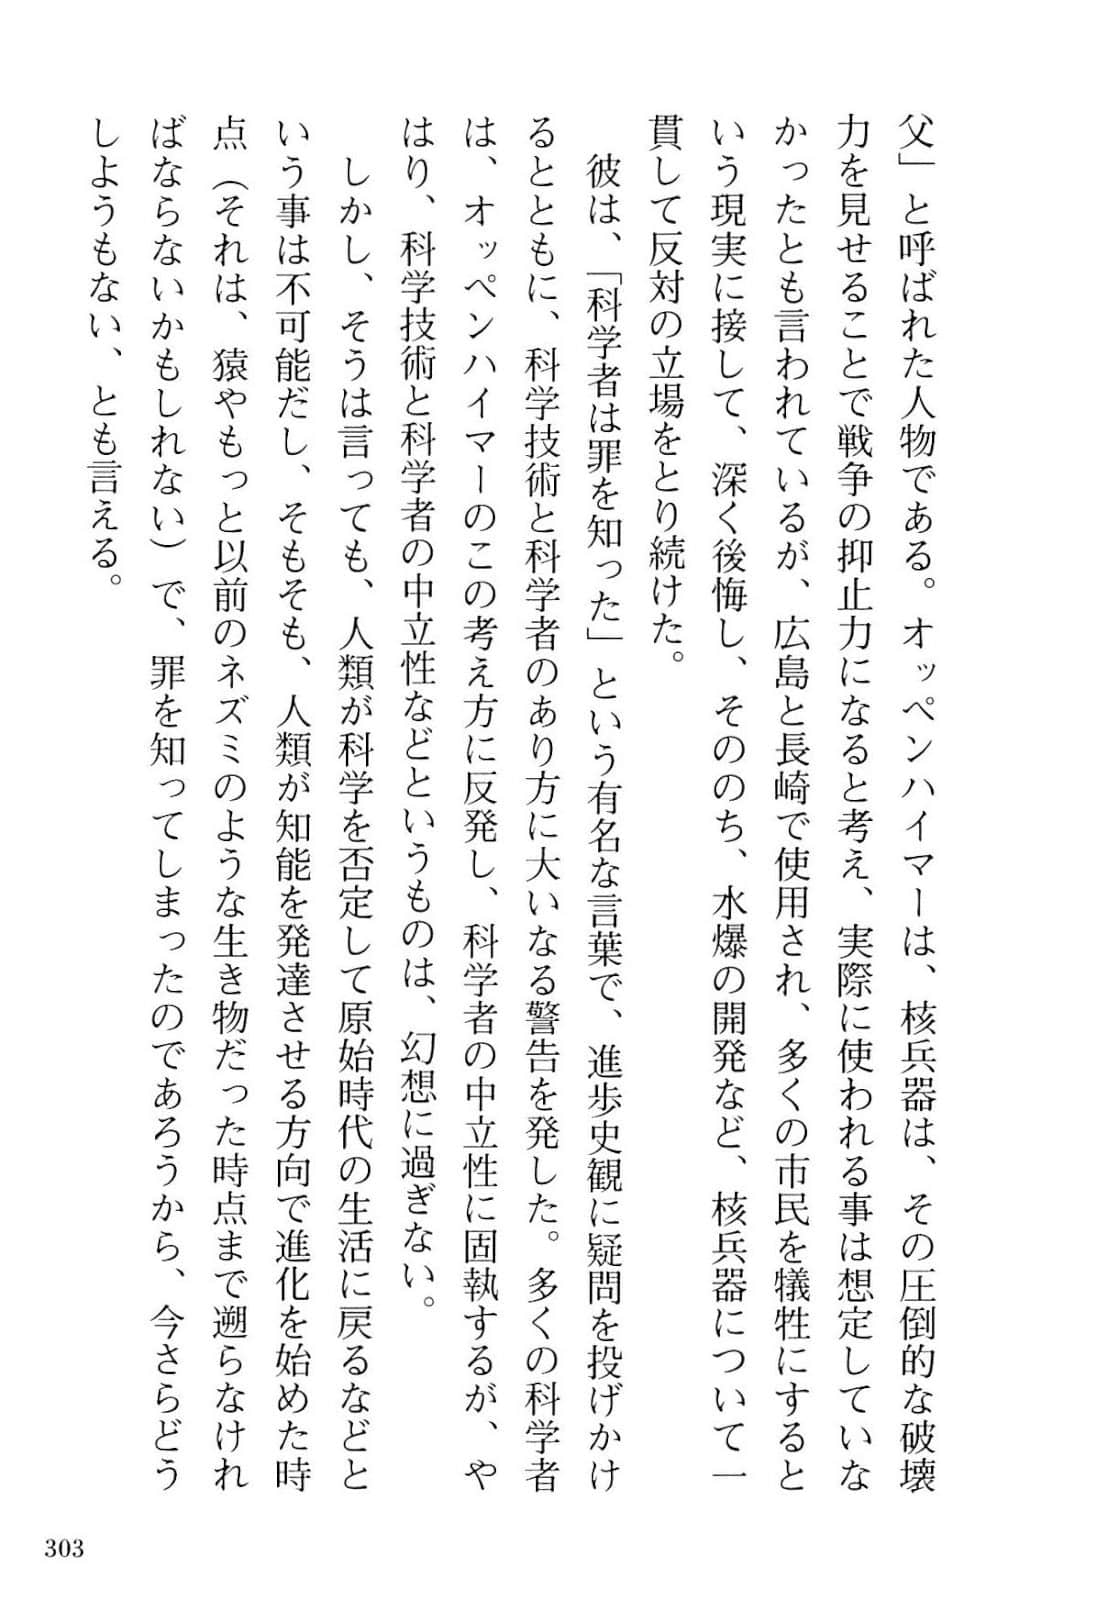 父」と呼ばれた人物である。オッペンハイマーは、核兵器は、その圧倒的な破壊
力を見せることで戦争の抑止力になると考え、実際に使われる事は想定していな
かったとも言われているが、広島と長崎で使用され、多くの市民を犠牲にすると
いう現実に接して、深く後悔し、そののち、水爆の開発など、核兵器について一
貫して反対の立場をとり続けた。
彼は、「科学者は罪を知った」という有名な言葉で、進歩史観に疑問を投げかけ
るとともに、科学技術と科学者のあり方に大いなる警告を発した。多くの科学者
は、オッペンハイマーのこの考え方に反発し、科学者の中立性に固執するが、や
はり、科学技術と科学者の中立性などというものは、幻想に過ぎない。
しかし、そうは言っても、人類が科学を否定して原始時代の生活に戻るなどと
いう事は不可能だし、そもそも、人類が知能を発達させる方向で進化を始めた時
点（それは、猿やもっと以前のネズミのような生き物だった時点まで遡らなけれ
ばならないかもしれない）で、罪を知ってしまったのであろうから、今さらどう
しようもない、とも言える。
303